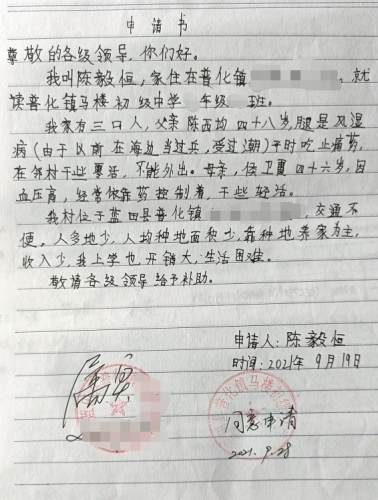 申请书
尊敬的各级领导,你们好。
我叫陈毅恒,家住在普化镇 ,就
读普化镇马楼初级中学 年级 班。
我家有三口人,父亲陈西均四十八岁,腿是风湿
病(由于以前在海边当过兵,受过潮)平时吃止痛药,
在邻村干些零活,不能外出。母亲,侯卫夏四十六岁,因
血压高,经常依靠药控制着,干些轻活。
我村位于蓝田县普化镇 ,交通不
便。人多地少,人均种地面积少,靠种地养家为主,
收入少,我上学也开销大,生活困难。
敬请各级领导给予补助。
申请人:陈毅恒
时间:2021年9月19日
属实
同意申请
2021.9.28